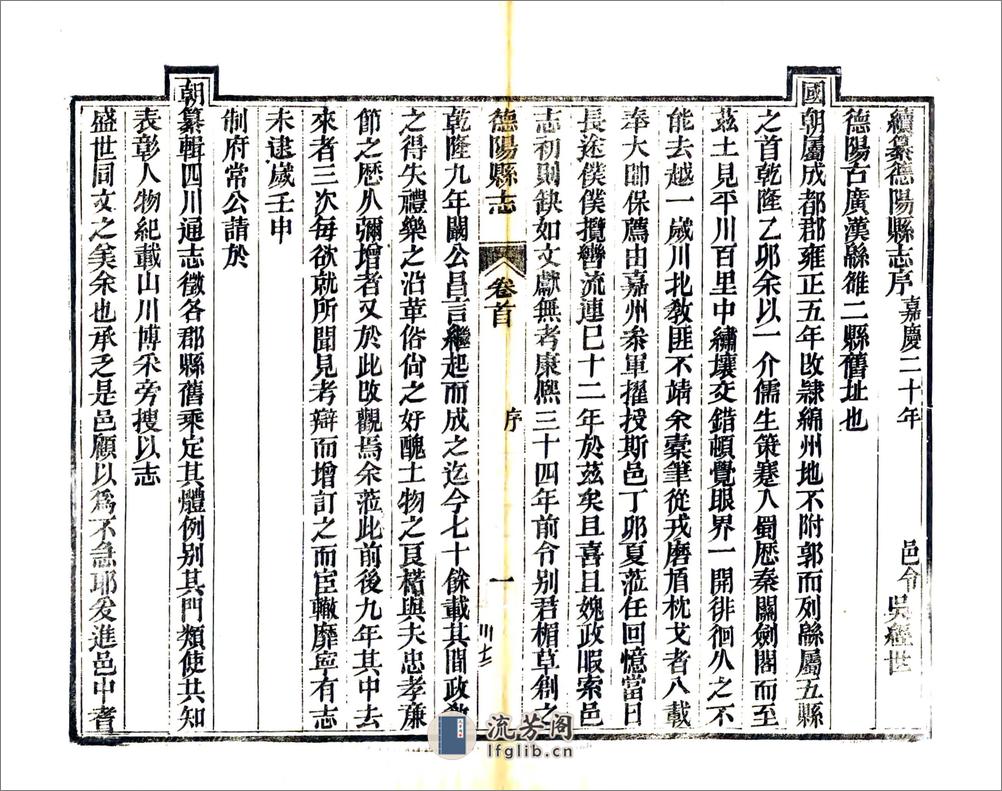 續纂德陽縣志序 嘉慶二十年 邑令 吳經世
德陽古廣漢緜雒二縣舊址也
國朝屬成都郡雍正五年改隸綿州地不附郭而列緜屬五縣
之首乾隆乙卯余以一介儒生策蹇入蜀歷秦關劍閣而至
茲土見平川百里中繡壤交錯頓覺眼界一開徘徊久之不
能去越一歲川北敎匪不靖余橐筆從戎磨盾枕戈者八載
奉大帥保薦由嘉州叅軍擢授斯邑丁卯夏蒞任回憶當日
長途僕僕攬轡流連已十二年於茲矣且喜且媿政暇索邑
志初則缺如文獻無考康熙三十四年前令別君楣草創之
德陽縣志 卷首 序 一
乾隆九年闞公昌言繼起而成之迄今七十餘載其間政敎
之得失禮樂之沿革俗尙之好醜土物之良楛與夫忠孝廉
節之歷久彌增者又於此改觀焉余蒞此前後九年其中去
來者三次每欲就所聞見考辯而增訂之而宦轍靡寧有志
未逮歲壬申
制府常公請於
朝纂輯四川通志徵各郡縣舊乘定其體例别其門類使共知
表彰人物紀載山川博采旁搜以志
盛世同文之美余也承乏是邑顧以爲不急耶爰進邑中耆
流芳阁
lfglib.cn